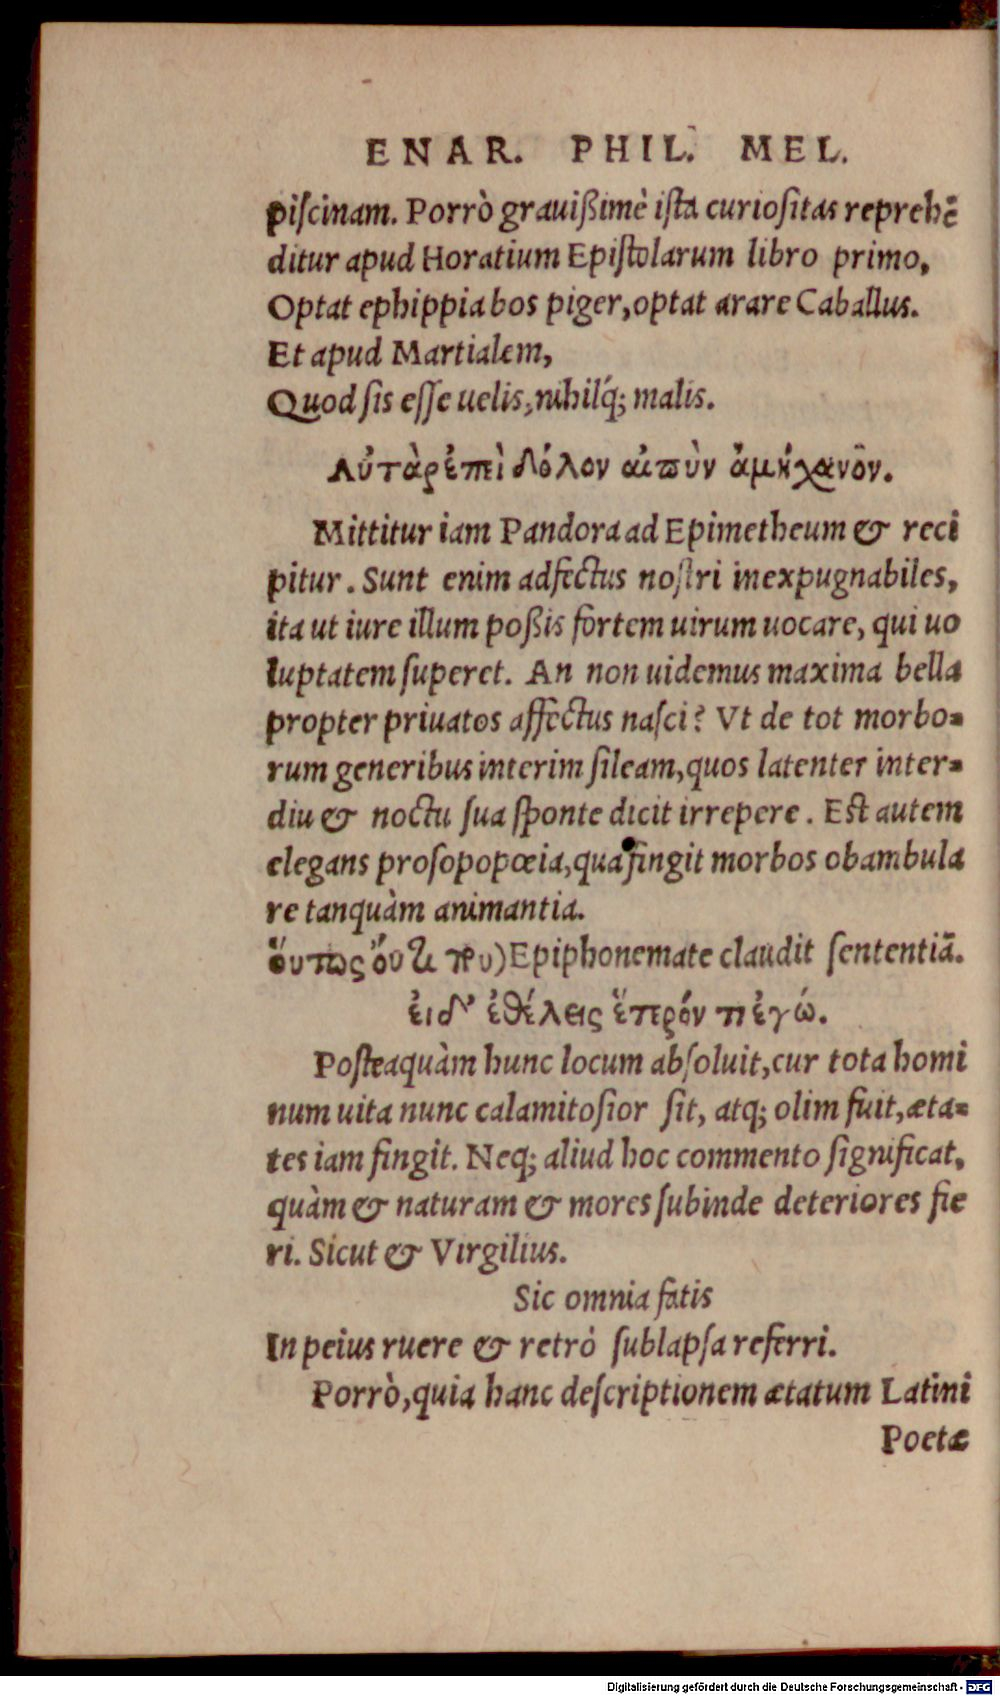 ENAR. PHIL. MEL.
piſcinam. Porrò grauißimè iſta curioſitas reprehē
ditur apud Horatium Epiſtolarum libro primo,
Optat ephippia bos piger, optat arare Caballus.
Et apud Martialem,
Quod ſis eſſe uelis, nihilq́; malis.
Αὐτὰρ ἐπεὶ δόλον αἰπὺν ἀμήχανον.
Mittitur iam Pandora ad Epimetheum & reci
pitur. Sunt enim adfectus noſtri inexpugnabiles,
ita ut iure illum poßis fortem uirum uocare, qui uo
luptatem ſuperet. An non uidemus maxima bella
propter priuatos affectus naſci? Vt de tot morbo=
rum generibus interim ſileam, quos latenter inter=
diu & noctu ſua ſponte dicit irrepere. Eſt autem
elegans proſopopœia, qua fingit morbos obambula
re tanquàm animantia.
ὅυτως ὄυτι πȣ) Epiphonemate claudit ſententiā.
ἐι δ' ἐθέλεις ἕτερόν τι ἐγώ.
Poſteaquàm hunc locum abſoluit, cur tota homi
num uita nunc calamitoſior ſit, atq; olim fuit, æta=
tes iam fingit. Neq; aliud hoc commento ſignificat,
quàm & naturam & mores ſubinde deteriores fie
ri. Sicut & Virgilius.
Sic omnia fatis
In peius ruere & retrò ſublapſa referri.
Porrò, quia hanc deſcriptionem ætatum Latini
Poetæ
Digitalisierung gefördert durch die Deutsche Forschungsgemeinschaft - DFG